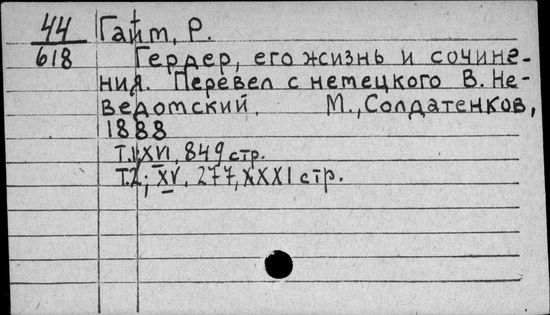 44 Гайм, Р.
618 Гердер, его жизнь и сочине-
ния. Перевел с немецкого В. Не-
ведомский. М., Солдатенков,
1888
Т.1; XVI, 849 стр.
Т.2; XV, 277, XXXI стр.